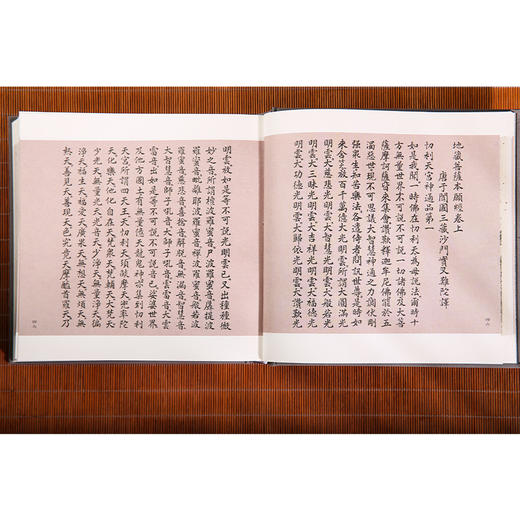 地藏菩薩本願經卷上
唐于闐國三藏沙門實叉難陀譯
忉利天宮神通品第一
如是我聞一時佛在忉利天為母說法爾時十
方無量世界不可說不可說一切諸佛及大菩
薩摩訶薩皆來集會讚歎釋迦牟尼佛能於五
濁惡世現不可思議大智慧神通之力調伏剛
强衆生知苦樂法各遣侍者問訊世尊是時如
來含笑放百千萬億大光明雲所謂大圓滿光
明雲大慈悲光明雲大智慧光明雲大般若光
明雲大三昧光明雲大吉祥光明雲大福德光
明雲大功德光明雲大歸依光明雲大讚歎光
明雲放如是等不可說光明雲已又出種種微
妙之音所謂檀波羅蜜音尸波羅蜜音羼提波
羅蜜音毗離耶波羅蜜音禪波羅蜜音般若波
羅蜜音慈悲音喜捨音解脫音無漏音智慧音
大智慧音師子吼音大師子吼音雲雷音大雲
雷音出如是等不可說不可說音已娑婆世界
及他方國土有無量億天龍鬼神亦集到忉利
天宮所謂四天王天忉利天須燄摩天兜率陀
天化樂天他化自在天梵衆天梵輔天大梵天
少光天無量光天光音天少淨天無量淨天徧
淨天福生天福愛天廣果天無想天無煩天無
熱天善見天善現天色究竟天摩醯首羅天乃